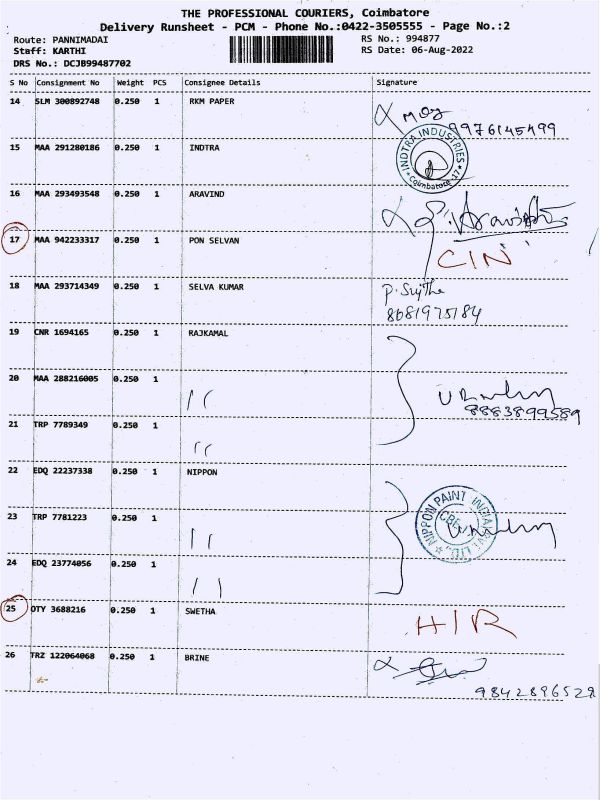 THE PROFESSIONAL COURIERS, Coimbatore
Delivery Runsheet - PCM - Phone No.:0422-3505555 - Page No.:2
Route: PANNIMADAI
RS No.: 994877
Staff: KARTHI
RS Date: 06-Aug-2022
DRS No.: DCJB99487702
S No Consignment No Weight PCS Consignee Details Signature
14 SLM 300892748 0.250 1 RKM PAPER
9976145499
15 MAA 291280186 0.250 1 INDTRA
INDTRA INDUSTRIES
Coimbatore-17
16 MAA 293493548 0.250 1 ARAVIND
17 MAA 942233317 0.250 1 PON SELVAN
CIN
18 MAA 293714349 0.250 1 SELVA KUMAR
8681975184
19 CNR 1694165 0.250 1 RAJKAMAL
20 MAA 288216005 0.250 1 " 
8883899589
21 TRP 7789349 0.250 1 "
22 EDQ 22237338 0.250 1 NIPPON
NIPPON PAINT (INDIA) PVT. LTD.
23 TRP 7781223 0.250 1 "
24 EDQ 23774056 0.250 1 "
25 OTY 3688216 0.250 1 SWETHA
HIR
26 TRZ 122064068 0.250 1 BRINE
9842896529